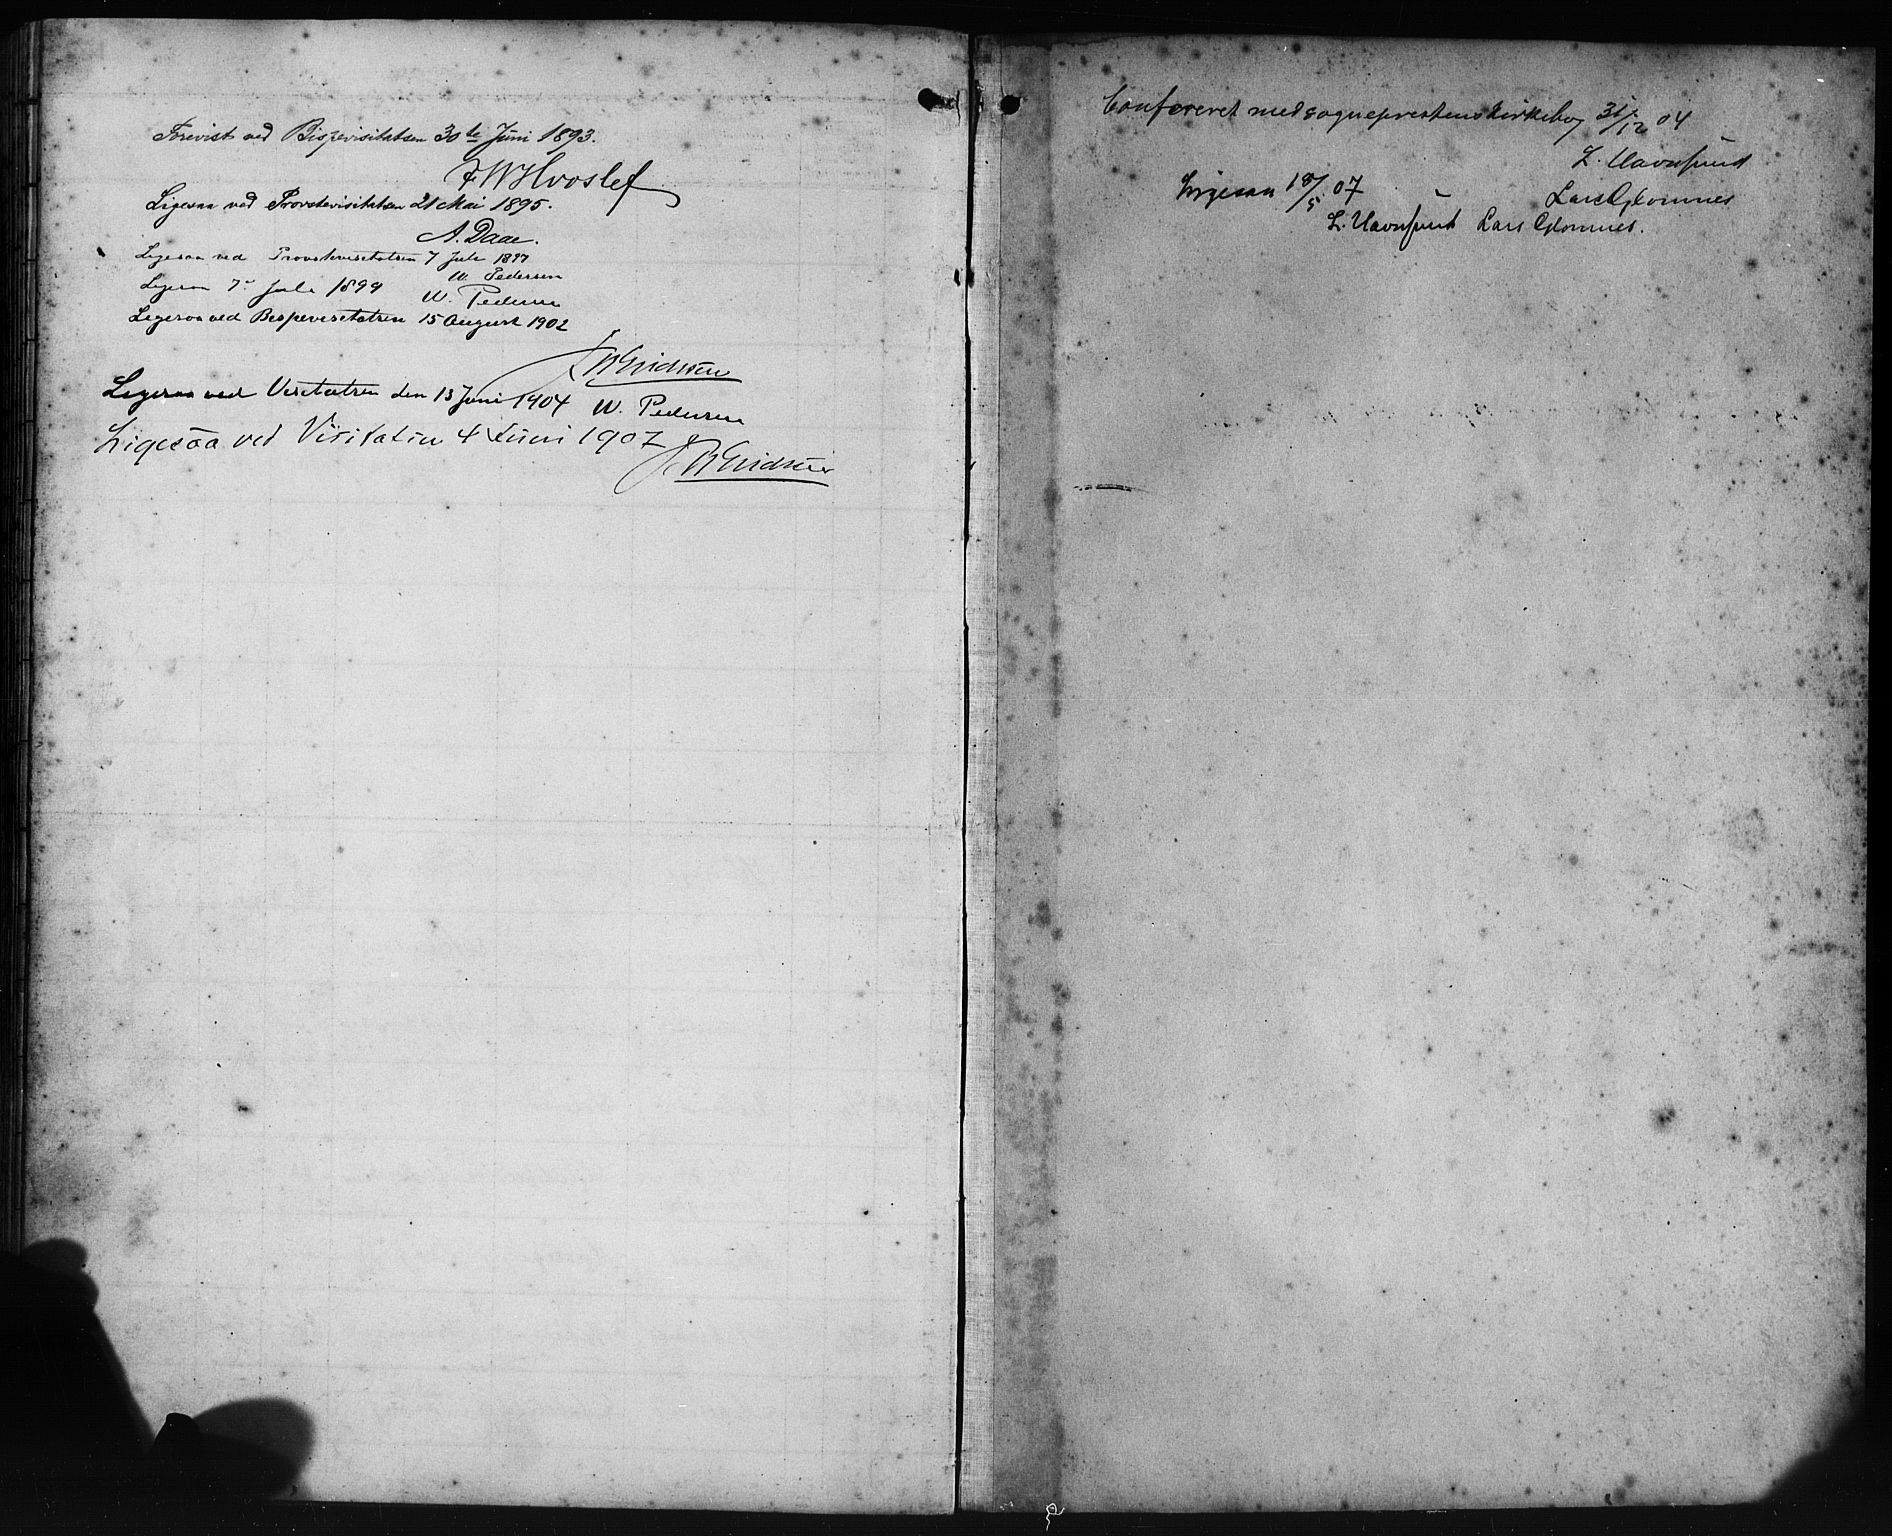 Forevist ved Bispevisitatsen 30te Juni 1893.
FWHvoslef
Ligesaa ved Provstevisitatsen 21 Mai 1895.
A. Daae.
Ligesaa ved Provstevisitatsen 7 Juli 1897
W. Pedersen
Ligesaa 7de Juli 1899
W. Pedersen
Ligesaa ved Bispevisitatsen 15 August 1902
Ligesaa ved Visitatsen den 13 Juni 1904 W. Pedersen
Ligesaa ved Visitatsen 4 Juni 1907
Confereret med sogneprestens kirkebog 31/12 04
L. Havnsund
Lars Glomnes
Ligesaa 18/5 07
L. Havnsund Lars Glomnes.